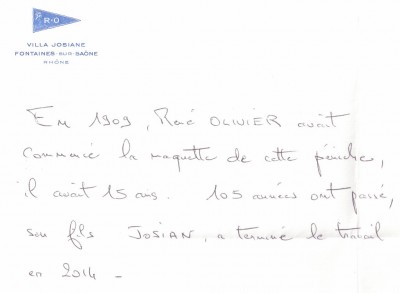 R·O
VILLA JOSIANE
FONTAINES SUR SAÔNE
RHÔNE
En 1909, René OLIVIER avait
commencé la maquette de cette péniche,
il avait 15 ans. 105 années ont passé,
son fils JOSIAN, a terminé le travail
en 2014 -